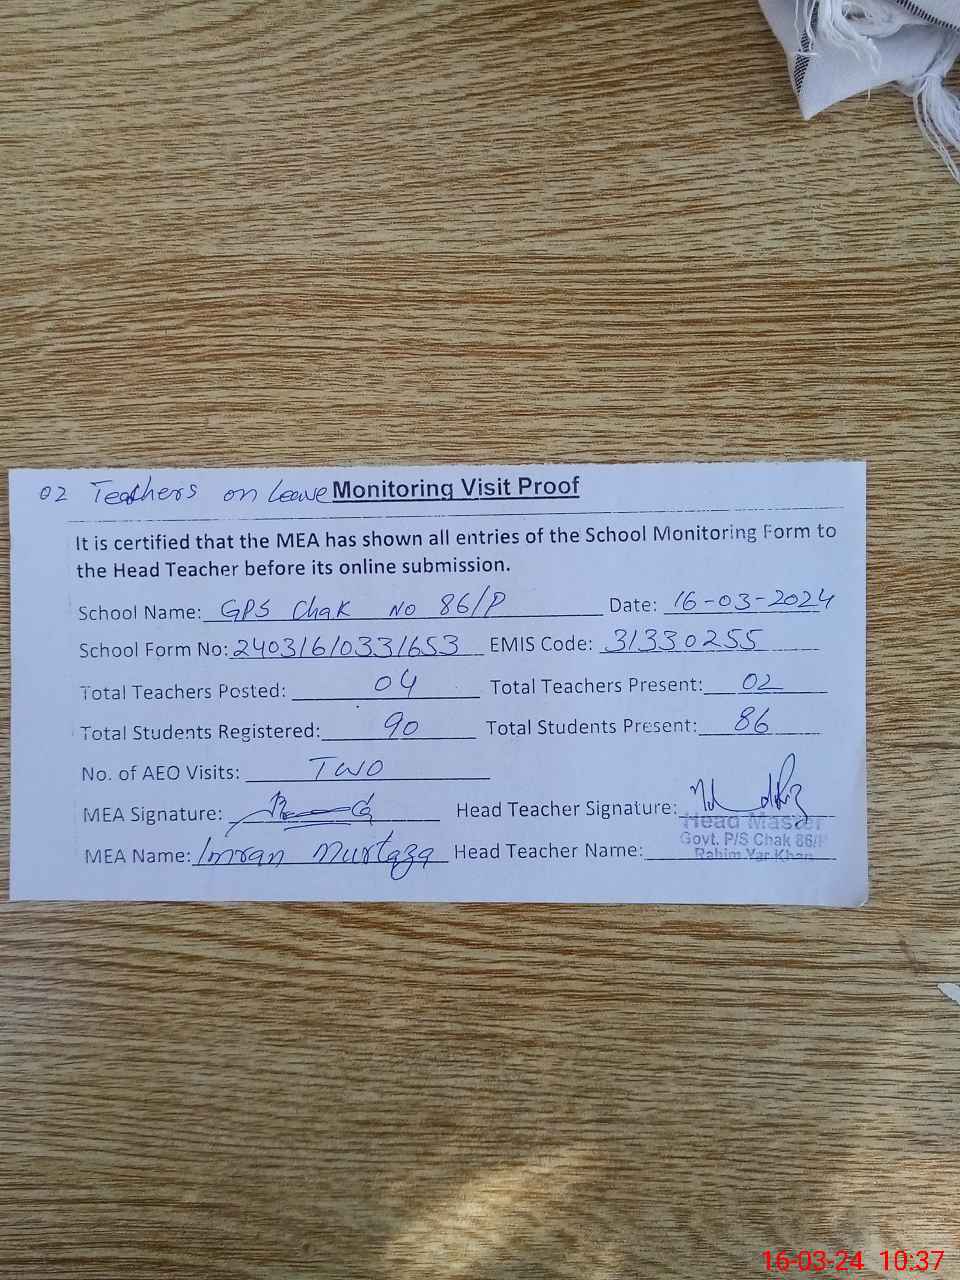 02 Teachers on Leave Monitoring Visit Proof
It is certified that the MEA has shown all entries of the School Monitoring Form to
the Head Teacher before its online submission.
School Name: GPS Chak No 86/P Date: 16-03-2024
School Form No: 240316/033/653 EMIS Code: 31330255
Total Teachers Posted: 04 Total Teachers Present: 02
Total Students Registered: 90 Total Students Present: 86
No. of AEO Visits: TWO
MEA Signature: Head Teacher Signature:
Head Master
MEA Name: Imran Murtaza Head Teacher Name:
Govt. P/S Chak 86/P
Rahim Yar Khan
16-03-24 10:37